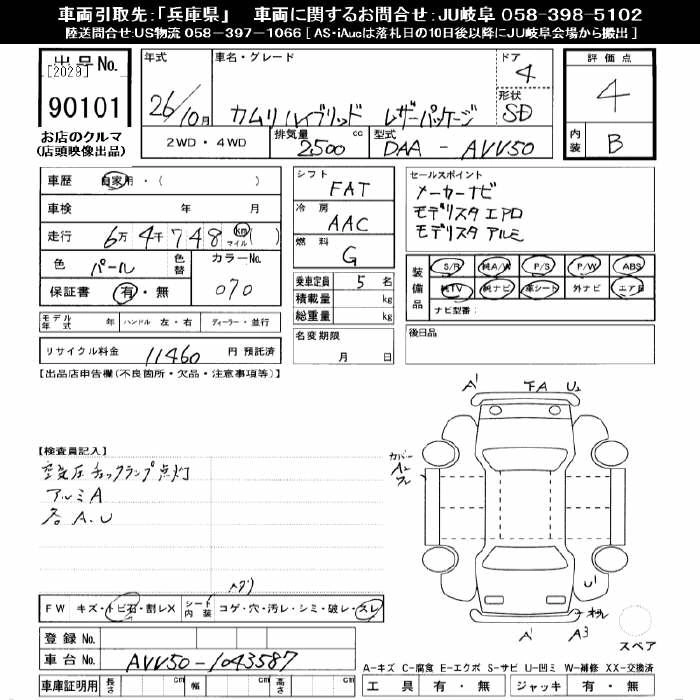 車両引取先:「兵庫県」　車両に関するお問合せ:JU岐阜 058-398-5102
陸送問合せ:US物流 058-397-1066 [ AS・iAucは落札日の10日後以降にJU岐阜会場から搬出 ]
出品No.
[2029]
90101
お店のクルマ
(店頭映像出品)
年式
26/10月
車名・グレード
カムリ ハイブリッド　レザーパッケージ
ドア
4
形状
SD
2WD・4WD
排気量
2500 cc
型式
DAA - AVV50
評価点
4
内装
B
車歴　自家用・(　　)
車検　年　月
走行　6万4千748 km マイル(　)
色　パール　色替　カラーNo.
070
保証書　有・無
モデル年式　年　ハンドル　左・右　ディーラー・並行
リサイクル料金　11460　円 預託済
シフト
FAT
冷房
AAC
燃料
G
乗車定員　5　名
積載量　kg
総重量　kg
名変期限
月　日
セールスポイント
メーカーナビ
モデリスタ エアロ
モデリスタ アルミ
装備品
S/R　純A/W　P/S　P/W　ABS
純TV　純ナビ　革シート　外ナビ　エアB
ナビ型番:
後日品
【出品店申告欄(不良箇所・欠品・注意事項等)】
【検査員記入】
空気圧チェックランプ点灯
アルミ A
各 A.U
A¹　下A　U₂
カバー
A₂
ワレ
U¹
A¹　A³
スペア
FW　キズ・トビ石・割レX　シート内装　コゲ・穴・汚レ・シミ・破レ・スレ
登録No.
車台No.　AVV50-1043587
車庫証明用　長さ　cm　幅　cm　高さ　cm
A-キズ　C-腐食　E-エクボ　S-サビ　U-凹ミ　W-補修　XX-交換済
工具　有・無　ジャッキ　有・無